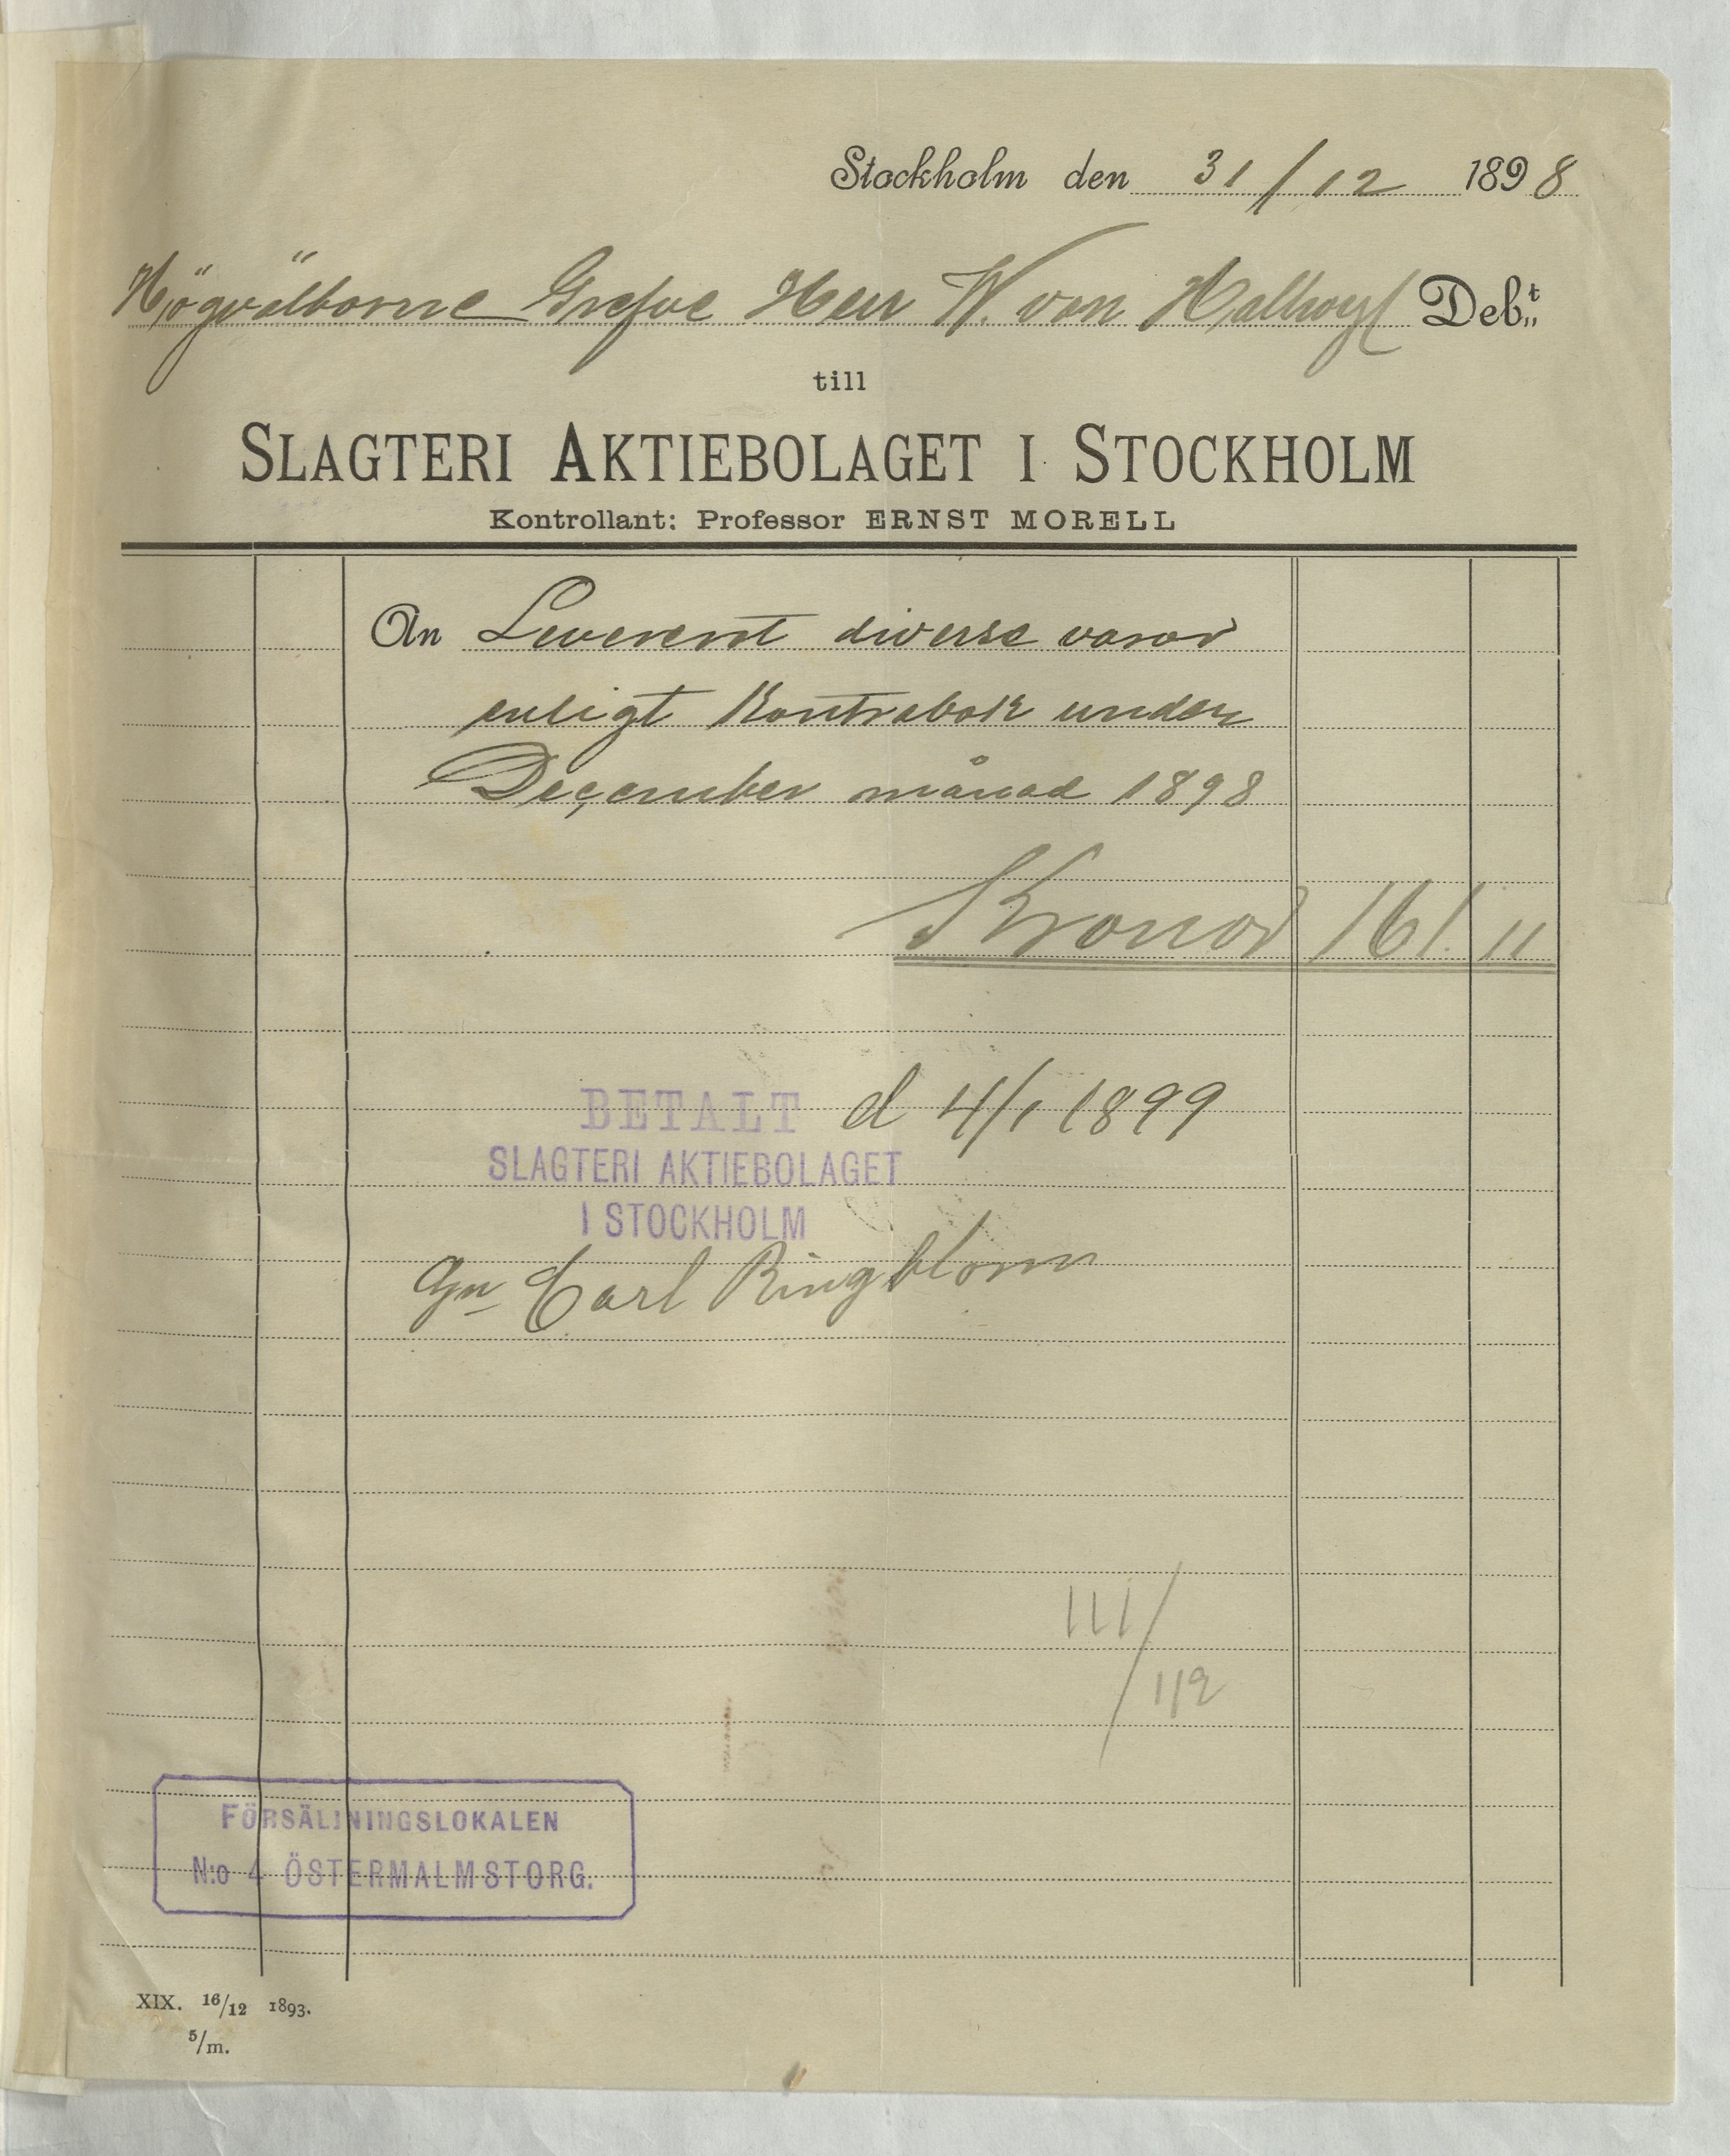 Stockholm den 31/12 1898
Högvälborne Grefve Herr W. von Hallwyl Deb:t
till
SLAGTERI AKTIEBOLAGET I STOCKHOLM
Kontrollant: Professor ERNST MORELL
An Levererat diverse varor
enligt Kontrabok under
December månad 1898
Kronor 161. 11
BETALT d 4/1 1899
SLAGTERI AKTIEBOLAGET
I STOCKHOLM
gm Carl Ringblom
111/112
FÖRSÄLJNINGSLOKALEN
N:o 4 ÖSTERMALMSTORG.
XIX. 16/12 1893.
5/m.